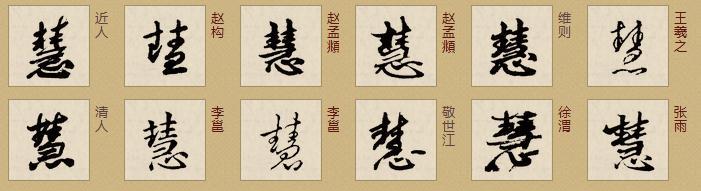 慧 近人
慧 赵构
慧 赵孟頫
慧 赵孟頫
慧 维则
慧 王羲之
慧 清人
慧 李邕
慧 李邕
慧 敬世江
慧 徐渭
慧 张雨